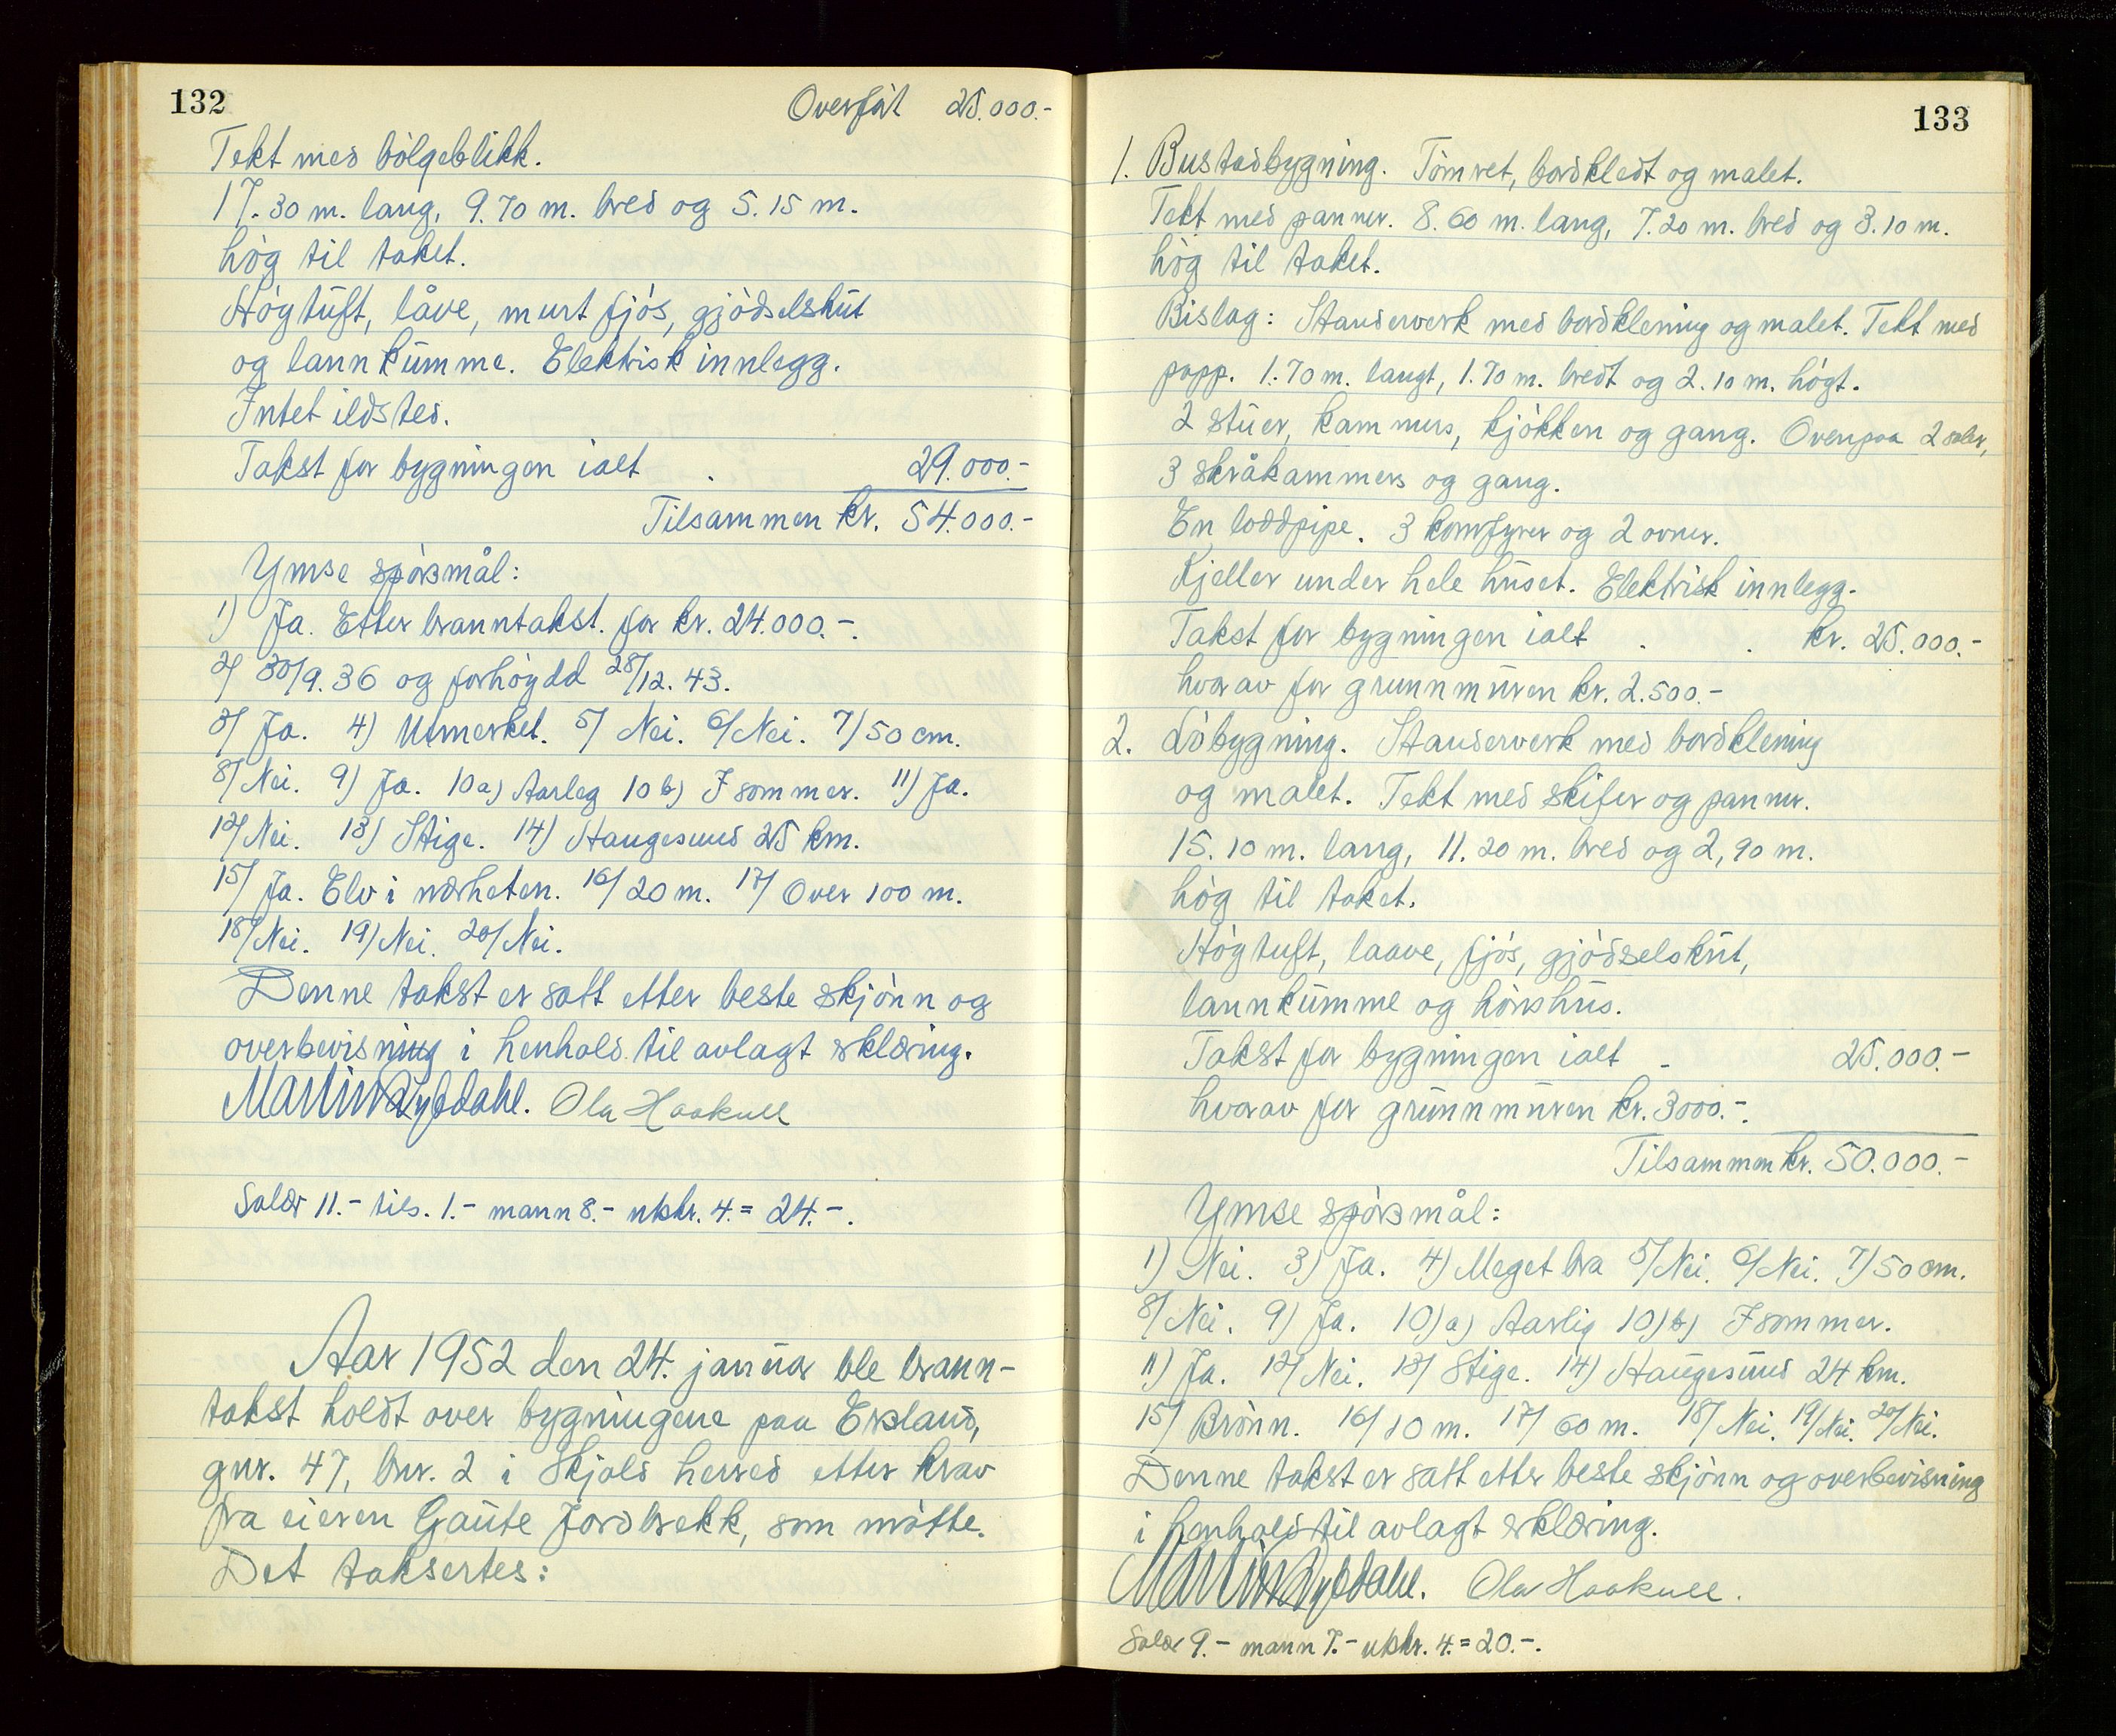 132
Overført 25.000.-
Tekt med bølgeblikk.
17.30 m. lang, 9.70 m. bred og 5.15 m.
høg til taket.
Høgtuft, låve, murt fjøs, gjødselskut
og lannkumme. Elektrisk innlegg.
Intet ildsted.
Takst for bygningen ialt . 29.000.-
Tilsammen kr. 54.000.-
Ymse spørsmål:
1) Ja. Etter branntakst. for kr. 24.000.-.
2) 30/9.36 og forhøgdd 28/12.43.
3) Ja. 4) Utmerket. 5) Nei. 6) Nei. 7) 50 cm.
8) Nei. 9) Ja. 10a) Aarleg 10b) I sommer. 11) Ja.
12) Nei. 13) Stige. 14) Haugesund 25 km.
15) Ja. Elv i nærheten. 16) 20 m. 17) Over 100 m.
18) Nei. 19) Nei. 20) Nei.
Denne takst er satt etter beste skjønn og
overbevisning i henhold til avlagt erklæring.
Martin Dybdahl. Ola Haakull
Salær 11.- tils. 1.- mann 8.- utskr. 4. = 24.-.
Aar 1952 den 24. januar ble brann-
takst holdt over bygningene paa Ersland,
gnr. 47, bnr. 2 i Skjold herred etter krav
fra eieren Gaute Jordbrekk, som møtte.
Det taksertes:
133
1. Bustadbygning. Tømret, bordkledt og malet.
Tekt med panner. 8.60 m. lang, 7.20 m. bred og 3.10 m.
høg til taket.
Bislag: Standerverk med bordklening og malet. Tekt med
papp. 1.70 m. langt, 1.70 m. bredt og 2.10 m. høgt.
2 stuer, kammers, kjøkken og gang. Ovenpaa 2 saler,
3 skråkammers og gang.
En loddpipe. 3 komfyrer og 2 ovner.
Kjeller under hele huset. Elektrisk innlegg.
Takst for bygningen ialt . . kr. 25.000.-
hvorav for grunnmuren kr. 2.500.-
2. Løbygning. Standerverk med bordklening
og malet. Tekt med skifer og panner.
15.10 m. lang, 11.20 m. bred og 2,90 m.
høg til taket.
Høgtuft, laave, fjøs, gjødselskut,
lannkumme og hønshus.
Takst for bygningen ialt - 25.000.-
hvorav for grunnmuren kr. 3000.-.
Tilsammen kr. 50.000.-
Ymse spørsmål:
1) Nei. 3) Ja. 4) Meget bra 5) Nei. 6) Nei. 7) 50 cm.
8) Nei. 9) Ja. 10)a) Aarlig 10)b) I sommer.
11) Ja. 12) Nei. 13) Stige. 14) Haugesund 24 km.
15) Brønn. 16) 10 m. 17) 60 m. 18) Nei. 19) Nei. 20) Nei.
Denne takst er satt etter beste skjønn og overbevisning
i henhold til avlagt erklæring.
Martin Dybdahl. Ola Haakull.
Salær 9.- mann 7.- utskr. 4. = 20.-.